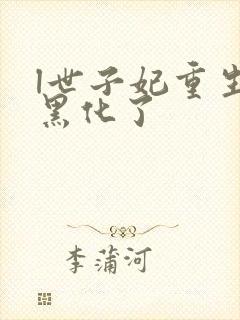 l世子妃重生
黑化了
李蒲河